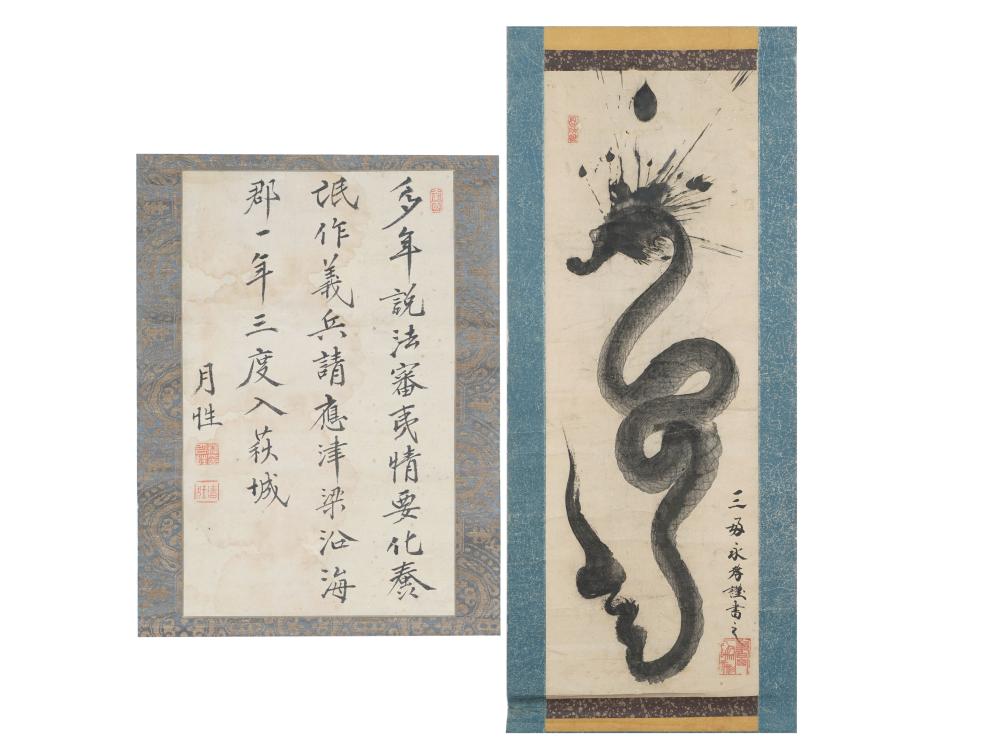 多年説法審夷情要化蠢
氓作義兵請應津梁沿海
郡一年三度入萩城
月性
三好永孝謹書之